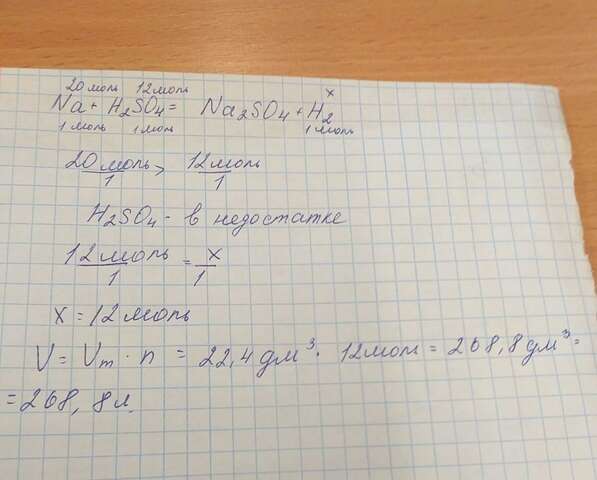 20моль 12моль x
Na + H2SO4 = Na2SO4 + H2
1 моль 1 моль 1 моль
20 моль/1 > 12моль/1
H2SO4 - в недостатке
12моль/1 = x/1
x = 12 моль
V = Vm · n = 22,4 дм³ · 12моль = 268,8 дм³ =
= 268,8л.